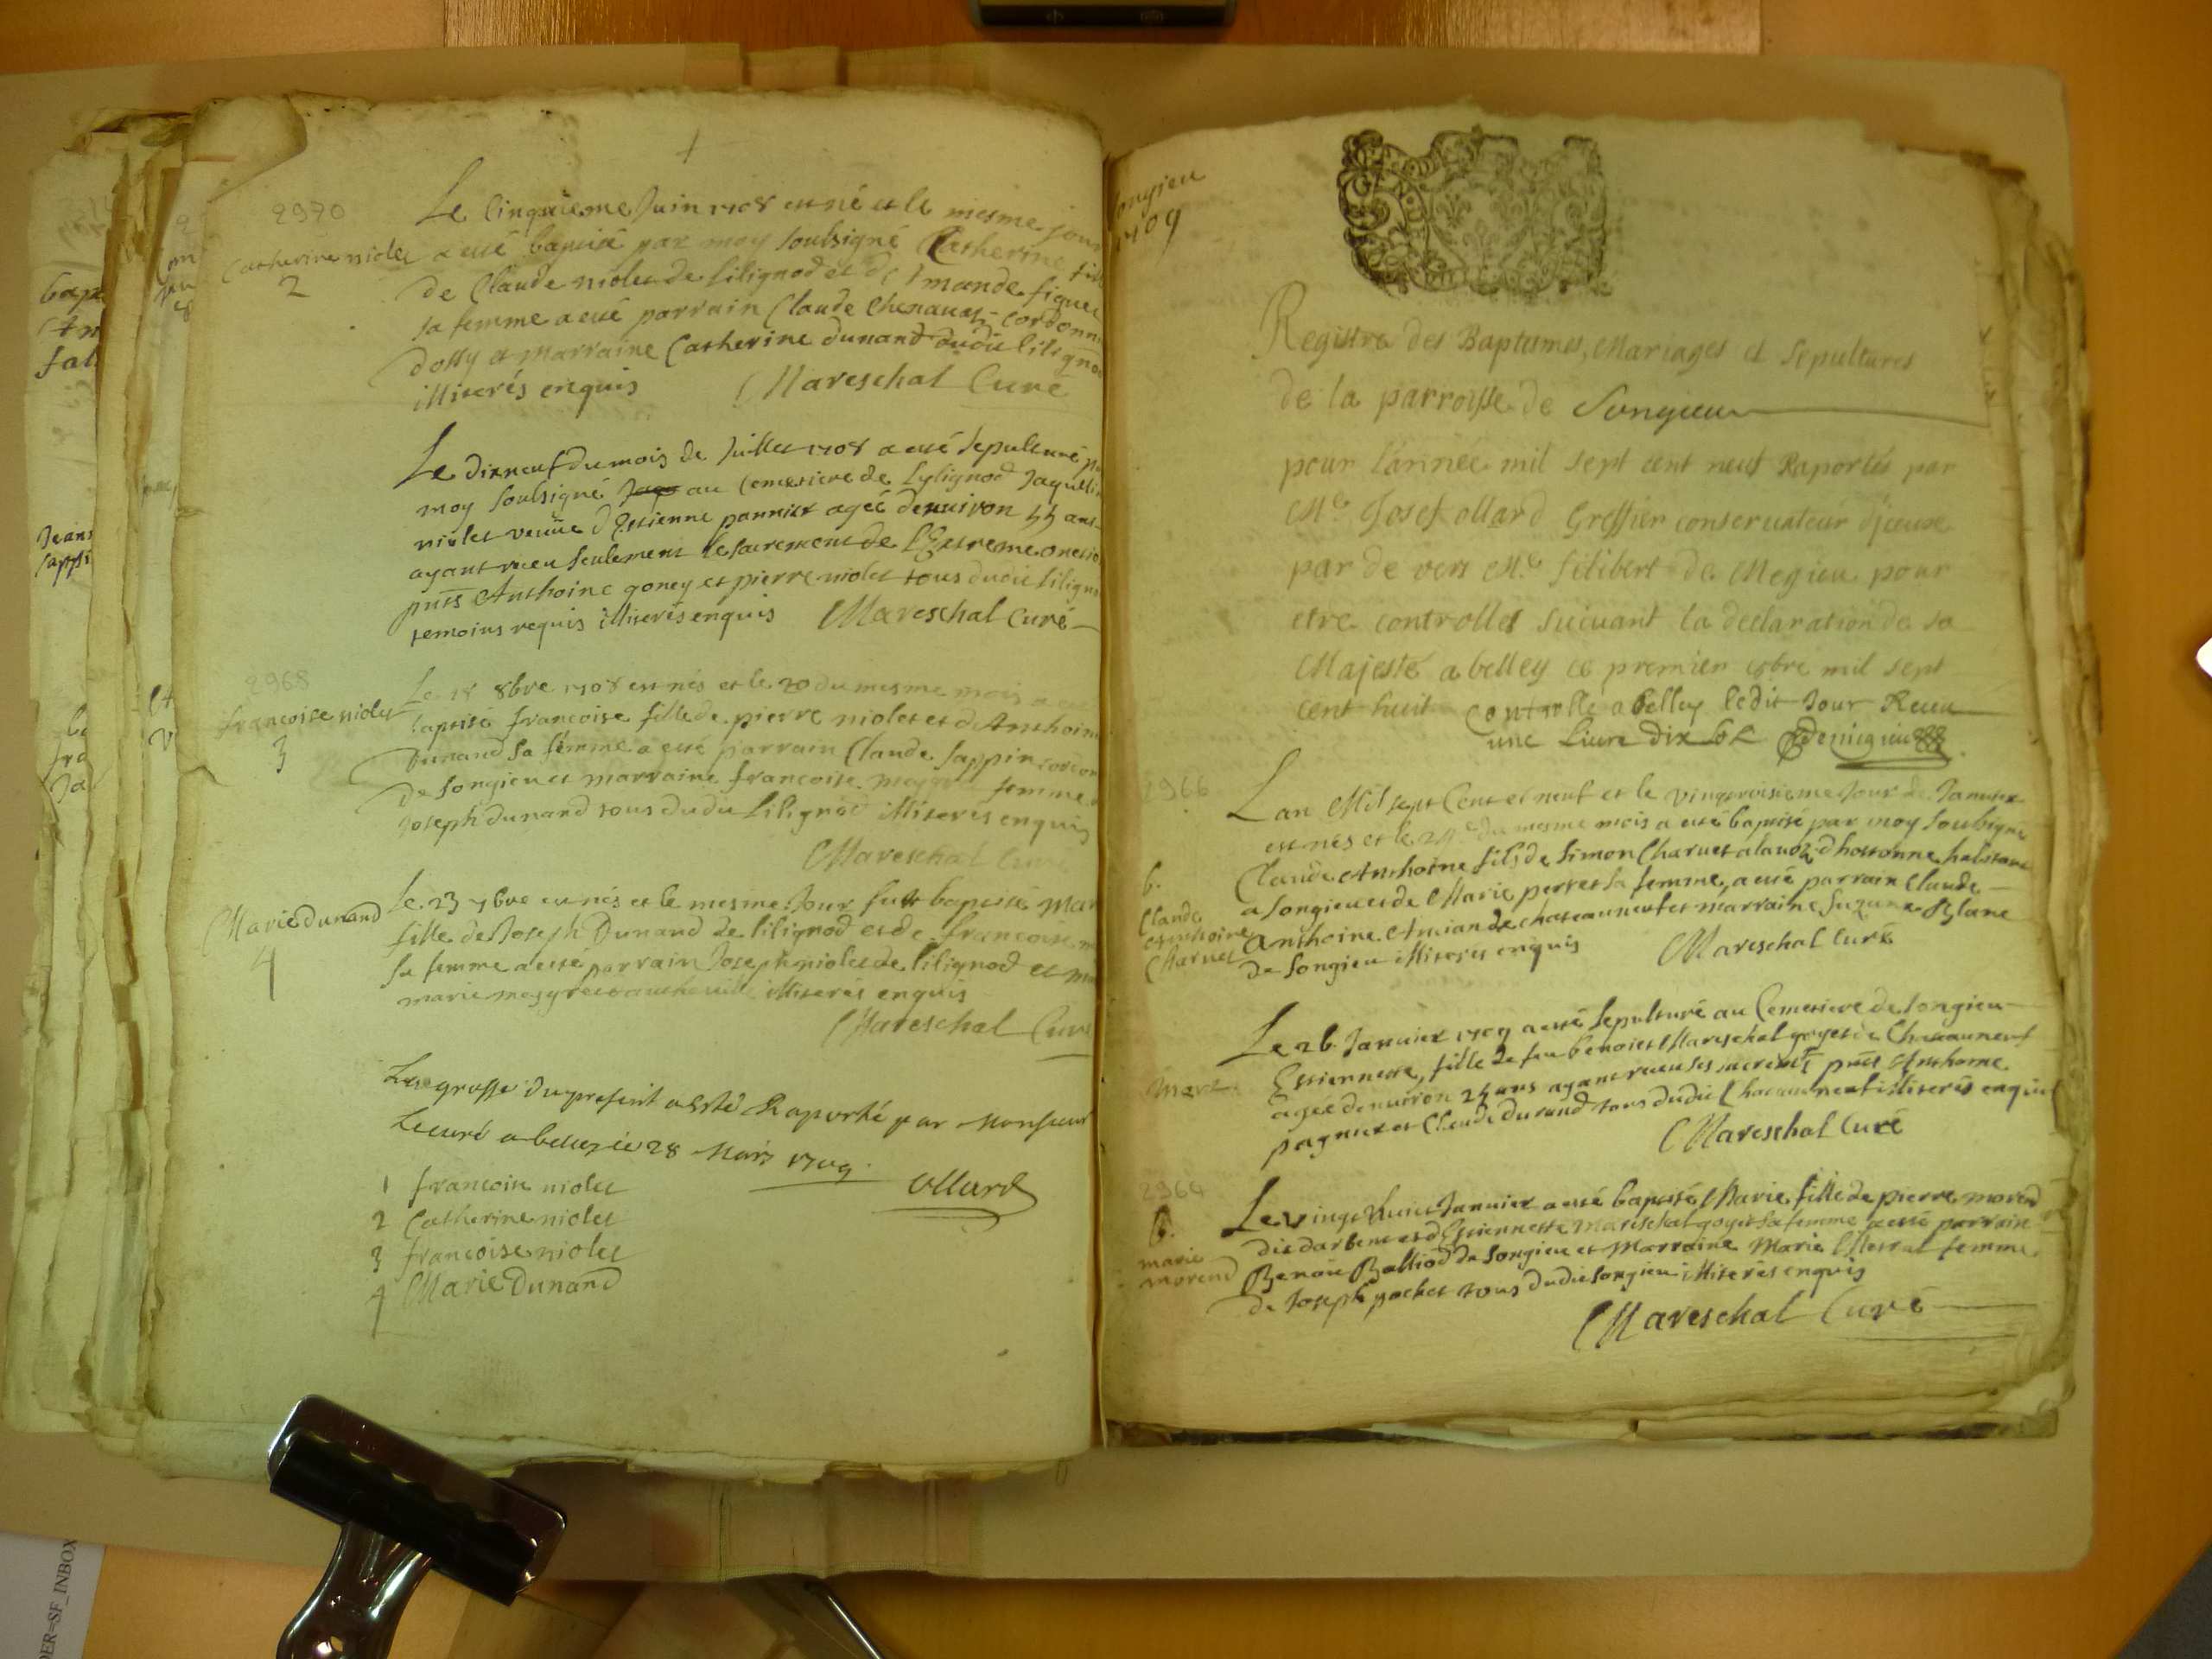 2970
Catherine niolet
2
Le Cinquieme Juin 1708 est né et le mesme jour
a esté baptisé par moy soubsigné Catherine fill
de Claude niolet de lilignod et de
sa femme a esté parrain Claude Chenavas cordonn
dossy et marraine Catherine dunand dudit lilignod
illiterés enquis Mareschal Curé
Le dixneuf du mois de Juillet 1708 a esté sepulturé p
moy soubsigné au Cemetiere de Lylignod Jaquelin
niolet veuve d'Estienne pannier agée denviron 55 ans
ayant receu seulement le sacrement de l'Extreme onctio
pnts Anthoine goney et pierre niolet tous dudit lilign
temoins requis illiterés enquis Mareschal Curé
2968
francoise niolet
3
Le 18 8bre 1708 est nés et le 20 du mesme mois a
baptisé francoise fille de pierre niolet et d'Anthoin
Dunand sa femme a esté parrain Claude Sappin
de Songieu et marraine francoise femme
Joseph dunand tous dudit Lilignod illiterés enquis
Mareschal Curé
Marie dunand
4
Le 23 9bre est nés et le mesme Jour fust baptisé Mar
fille de Joseph Dunand de lilignod et de francoise m
sa femme a esté parrain Joseph niolet de lilignod et m
marie illiterés enquis
Mareschal Curé
La grosse du present a esté Raporté par Monsieur
Le curé a belley ce 28 Mars 1709
ollard
1 francoise niolet
2 Catherine niolet
3 francoise niolet
4 Marie Dunand
Songieu
1709
Registre des Baptesmes, Mariages et Sepultures
de la parroisse de Songieu
pour l'année mil sept cent neuf Raportés par
Me Josef ollard Greffier conservateur d'jceux
par de vers Me filibert de Megieu pour
etre controlles suivant la declaration de sa
Majesté a belley ce premier mil sept
cent huit Controlle a belley ledit Jour Receu
une Livre dix sols demigieu
2966
b.
Claude
Anthoine
Charvet
Lan Mil sept Cent et neuf et le vingtroisieme Jour de Janvier
est nés et le 24e du mesme mois a esté baptisé par moy soubsigné
Claude Anthoine fils de Simon Charvet d'hostonne habitant
a Songieu et de Marie perret sa femme, a esté parrain Claude
Anthoine de chateauneuf et marraine Suzane
de Songieu illiterés enquis Mareschal Curé
mort
Le 26 Janvier 1709 a esté sepulturé au Cemetiere de Songieu
Estiennette, fille de feu benoist Mareschal goyet de Chateauneuf
agée denviron 25 ans ayant receu ses sacremts pnts Anthoine
pagnier et Claude durand tous dudit Chateauneuf illiterés enquis
Mareschal Curé
2964
b.
marie
morend
Le vingt huict Janvier a esté baptisé Marie fille de pierre morend
dit darbene et d'Estiennette Mareschal goyet sa femme a esté parrain
Benoit Balliod de Songieu et Marraine Marie femme
de Joseph pochet tous dudit Songieu illiterés enquis
Mareschal Curé
DER=SF_INBOX